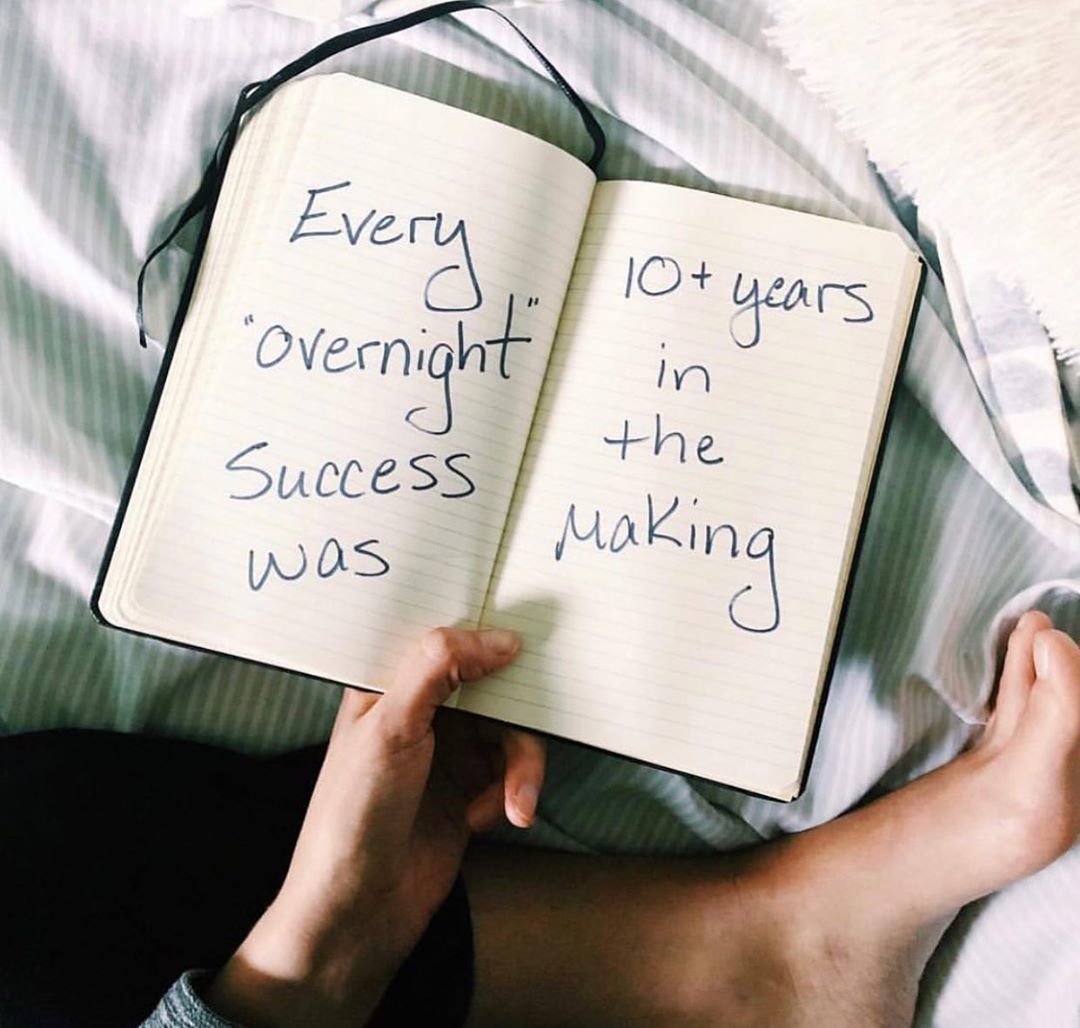 Every
"overnight"
Success
was
10+ years
in
the
Making